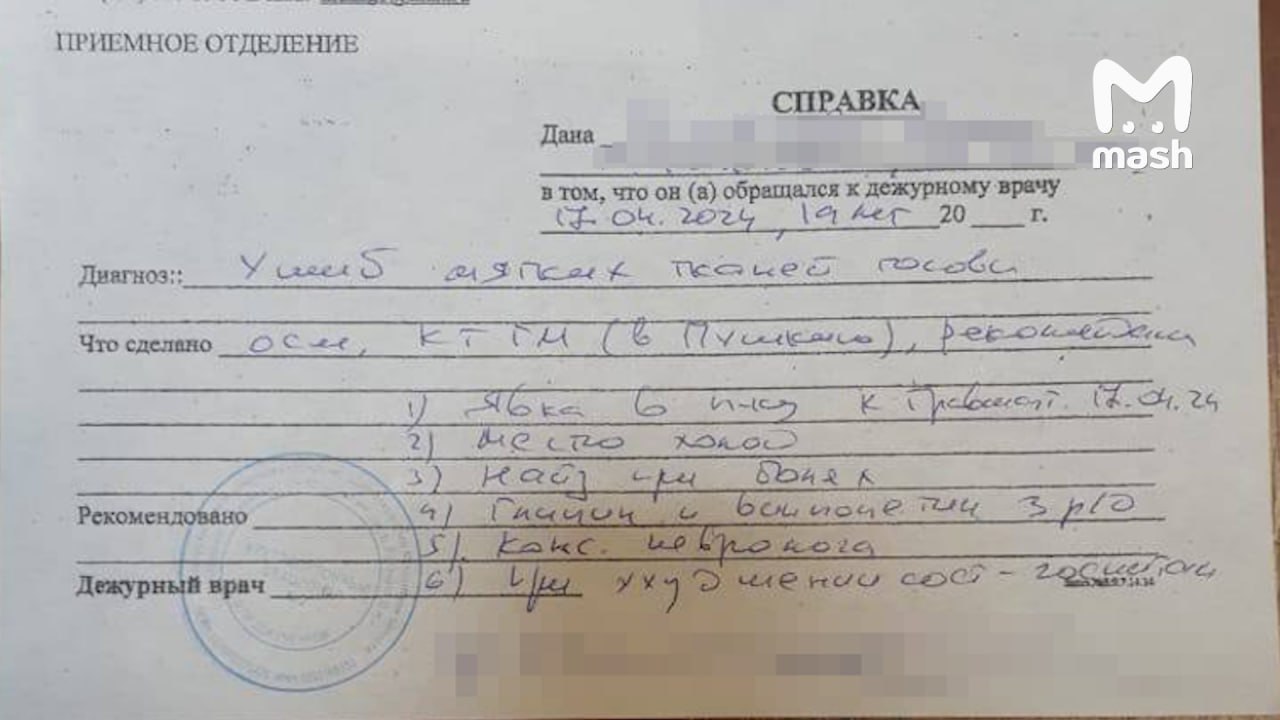 ПРИЕМНОЕ ОТДЕЛЕНИЕ
mash
СПРАВКА
Дана
в том, что он (а) обращался к дежурному врачу
17.04.2024, 19 лет 20 г.
Диагноз:: Ушиб мягких тканей головы
Что сделано осм, КТ ГМ (в Пушкино), рекомендации
1) Явка в п-ку к травмат. 17.04.24
2) Место холод
3) Найз при болях
Рекомендовано 4) Глицин и винпоцетин 3 р/д
5). Конс. невролога
Дежурный врач 6) При ухудшении сост - госпитал